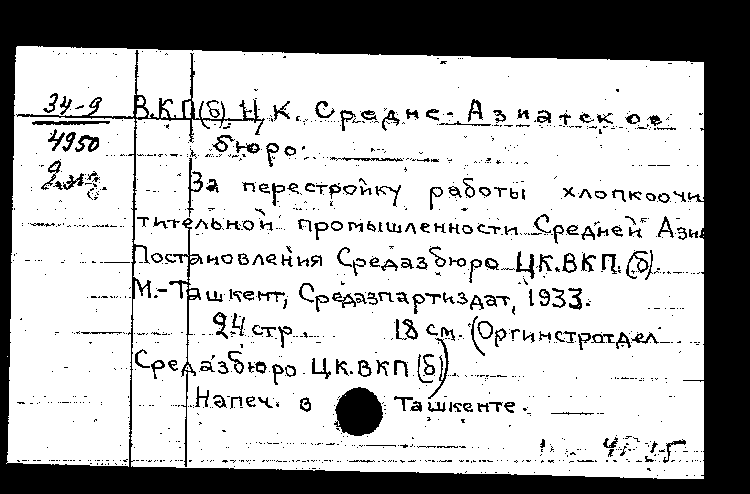 34-9
4950
2 экз.
В.К.П(б). Ц.К. Средне-Азиатское
бюро.
За перестройку работы хлопкоочи
тительной промышленности Средней Ази
Постановления Средазбюро ЦК.ВКП.(б).
М.-Ташкент, Средазпартиздат, 1933.
24 стр. 18 см. (Оргинстротдел
Средазбюро Ц.К.ВКП(б)).
Напеч. в Ташкенте.